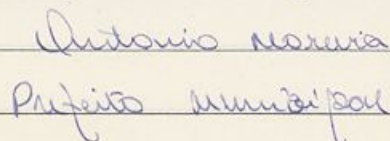 Antonio Moreira
Prefeito Municipal